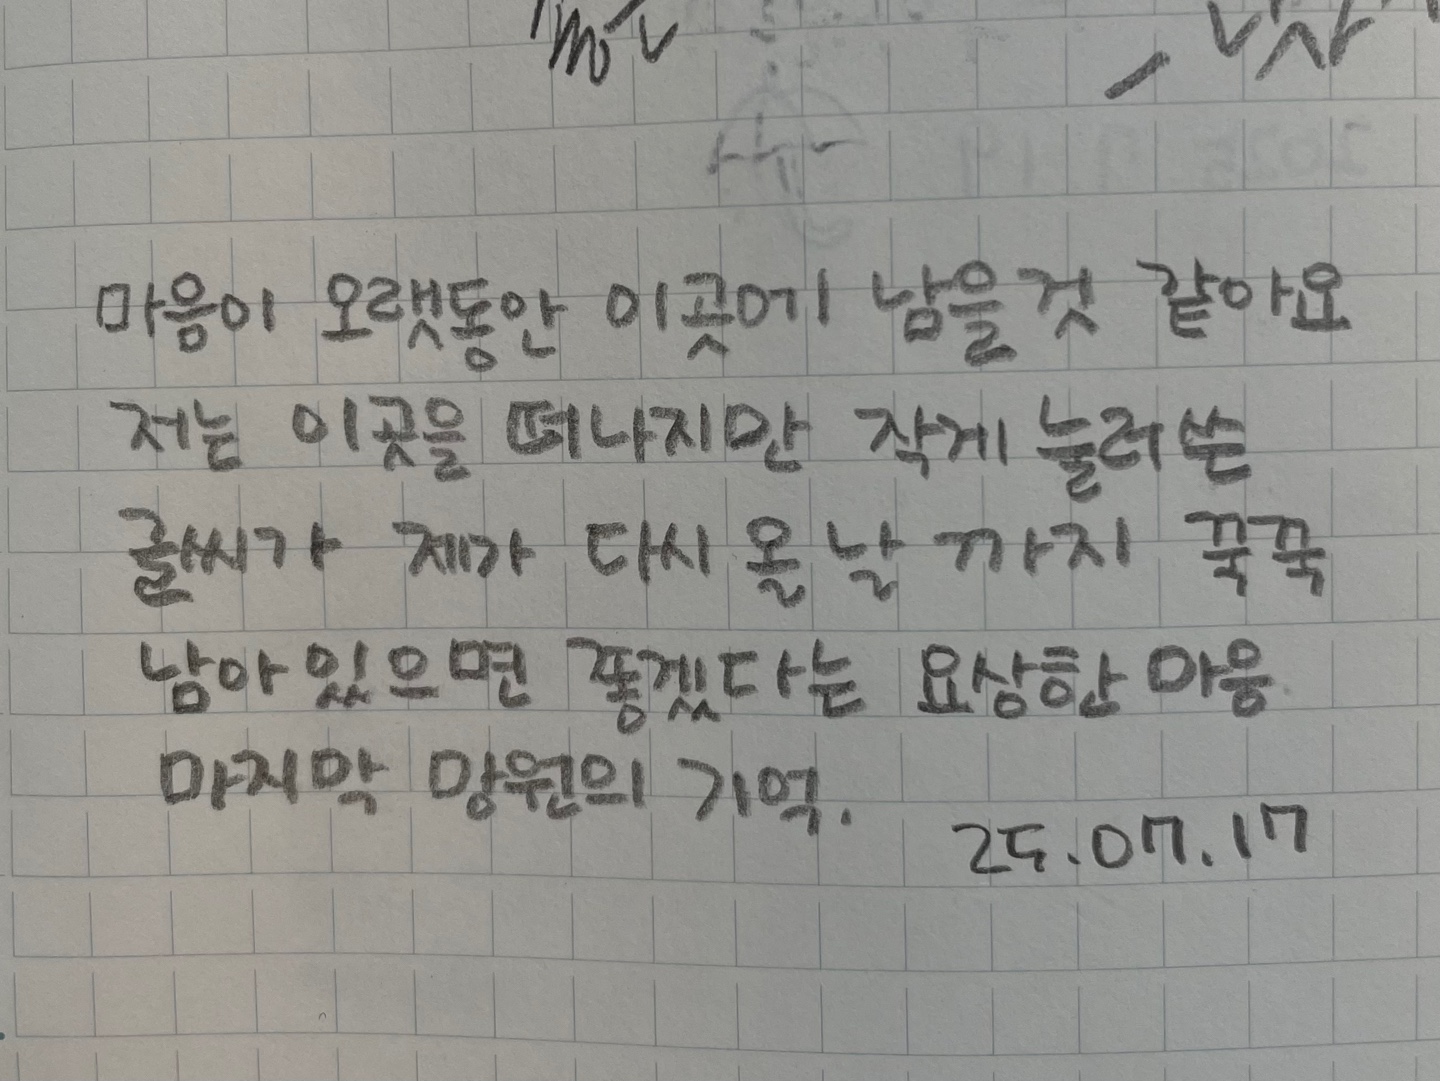 마음이 오랫동안 이곳에 남을것 같아요
저는 이곳을 떠나지만 작게 눌러쓴
글씨가 제가 다시 올 날까지 꾹꾹
남아있으면 좋겠다는 요상한 마음
마지막 망원의 기억.
25.07.17